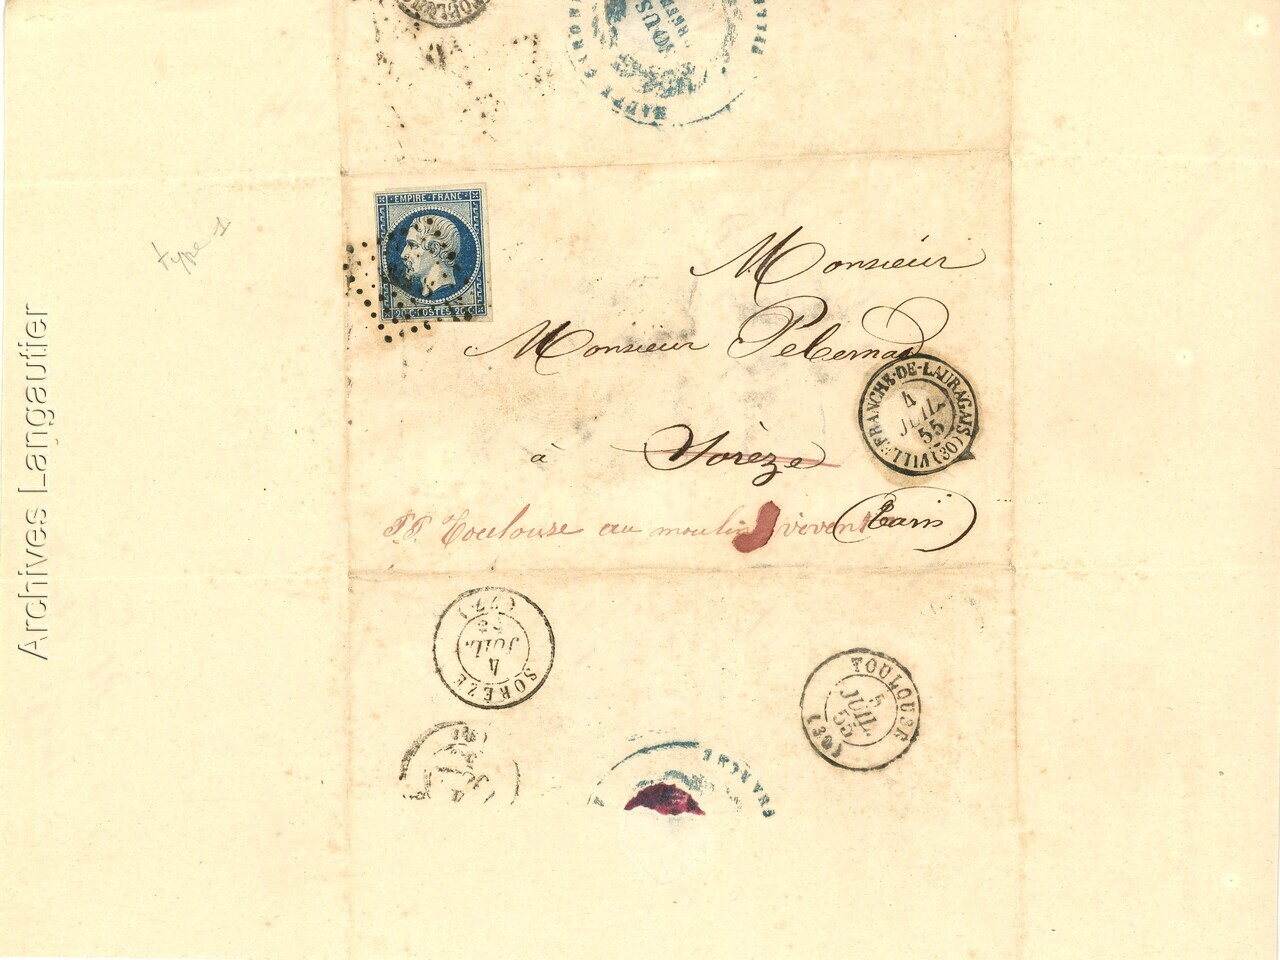 type 1
Archives Langautier
EMPIRE·FRANC
20 C· POSTES 20 C
Monsieur
Monsieur Pebernad
à Sorèze
(Tarn)
T.P. Toulouse au moulin vivent
VILLEFRANCHE-DE-LAURAGAIS (30)
4
JUIL.
55
SORÈZE
4
JUIL.
TOULOUSE (30)
5
JUIL.
55
FRANCHE